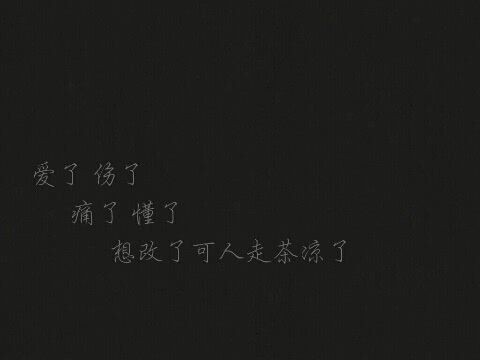 爱了 伤了
痛了 懂了
想改了可人走茶凉了